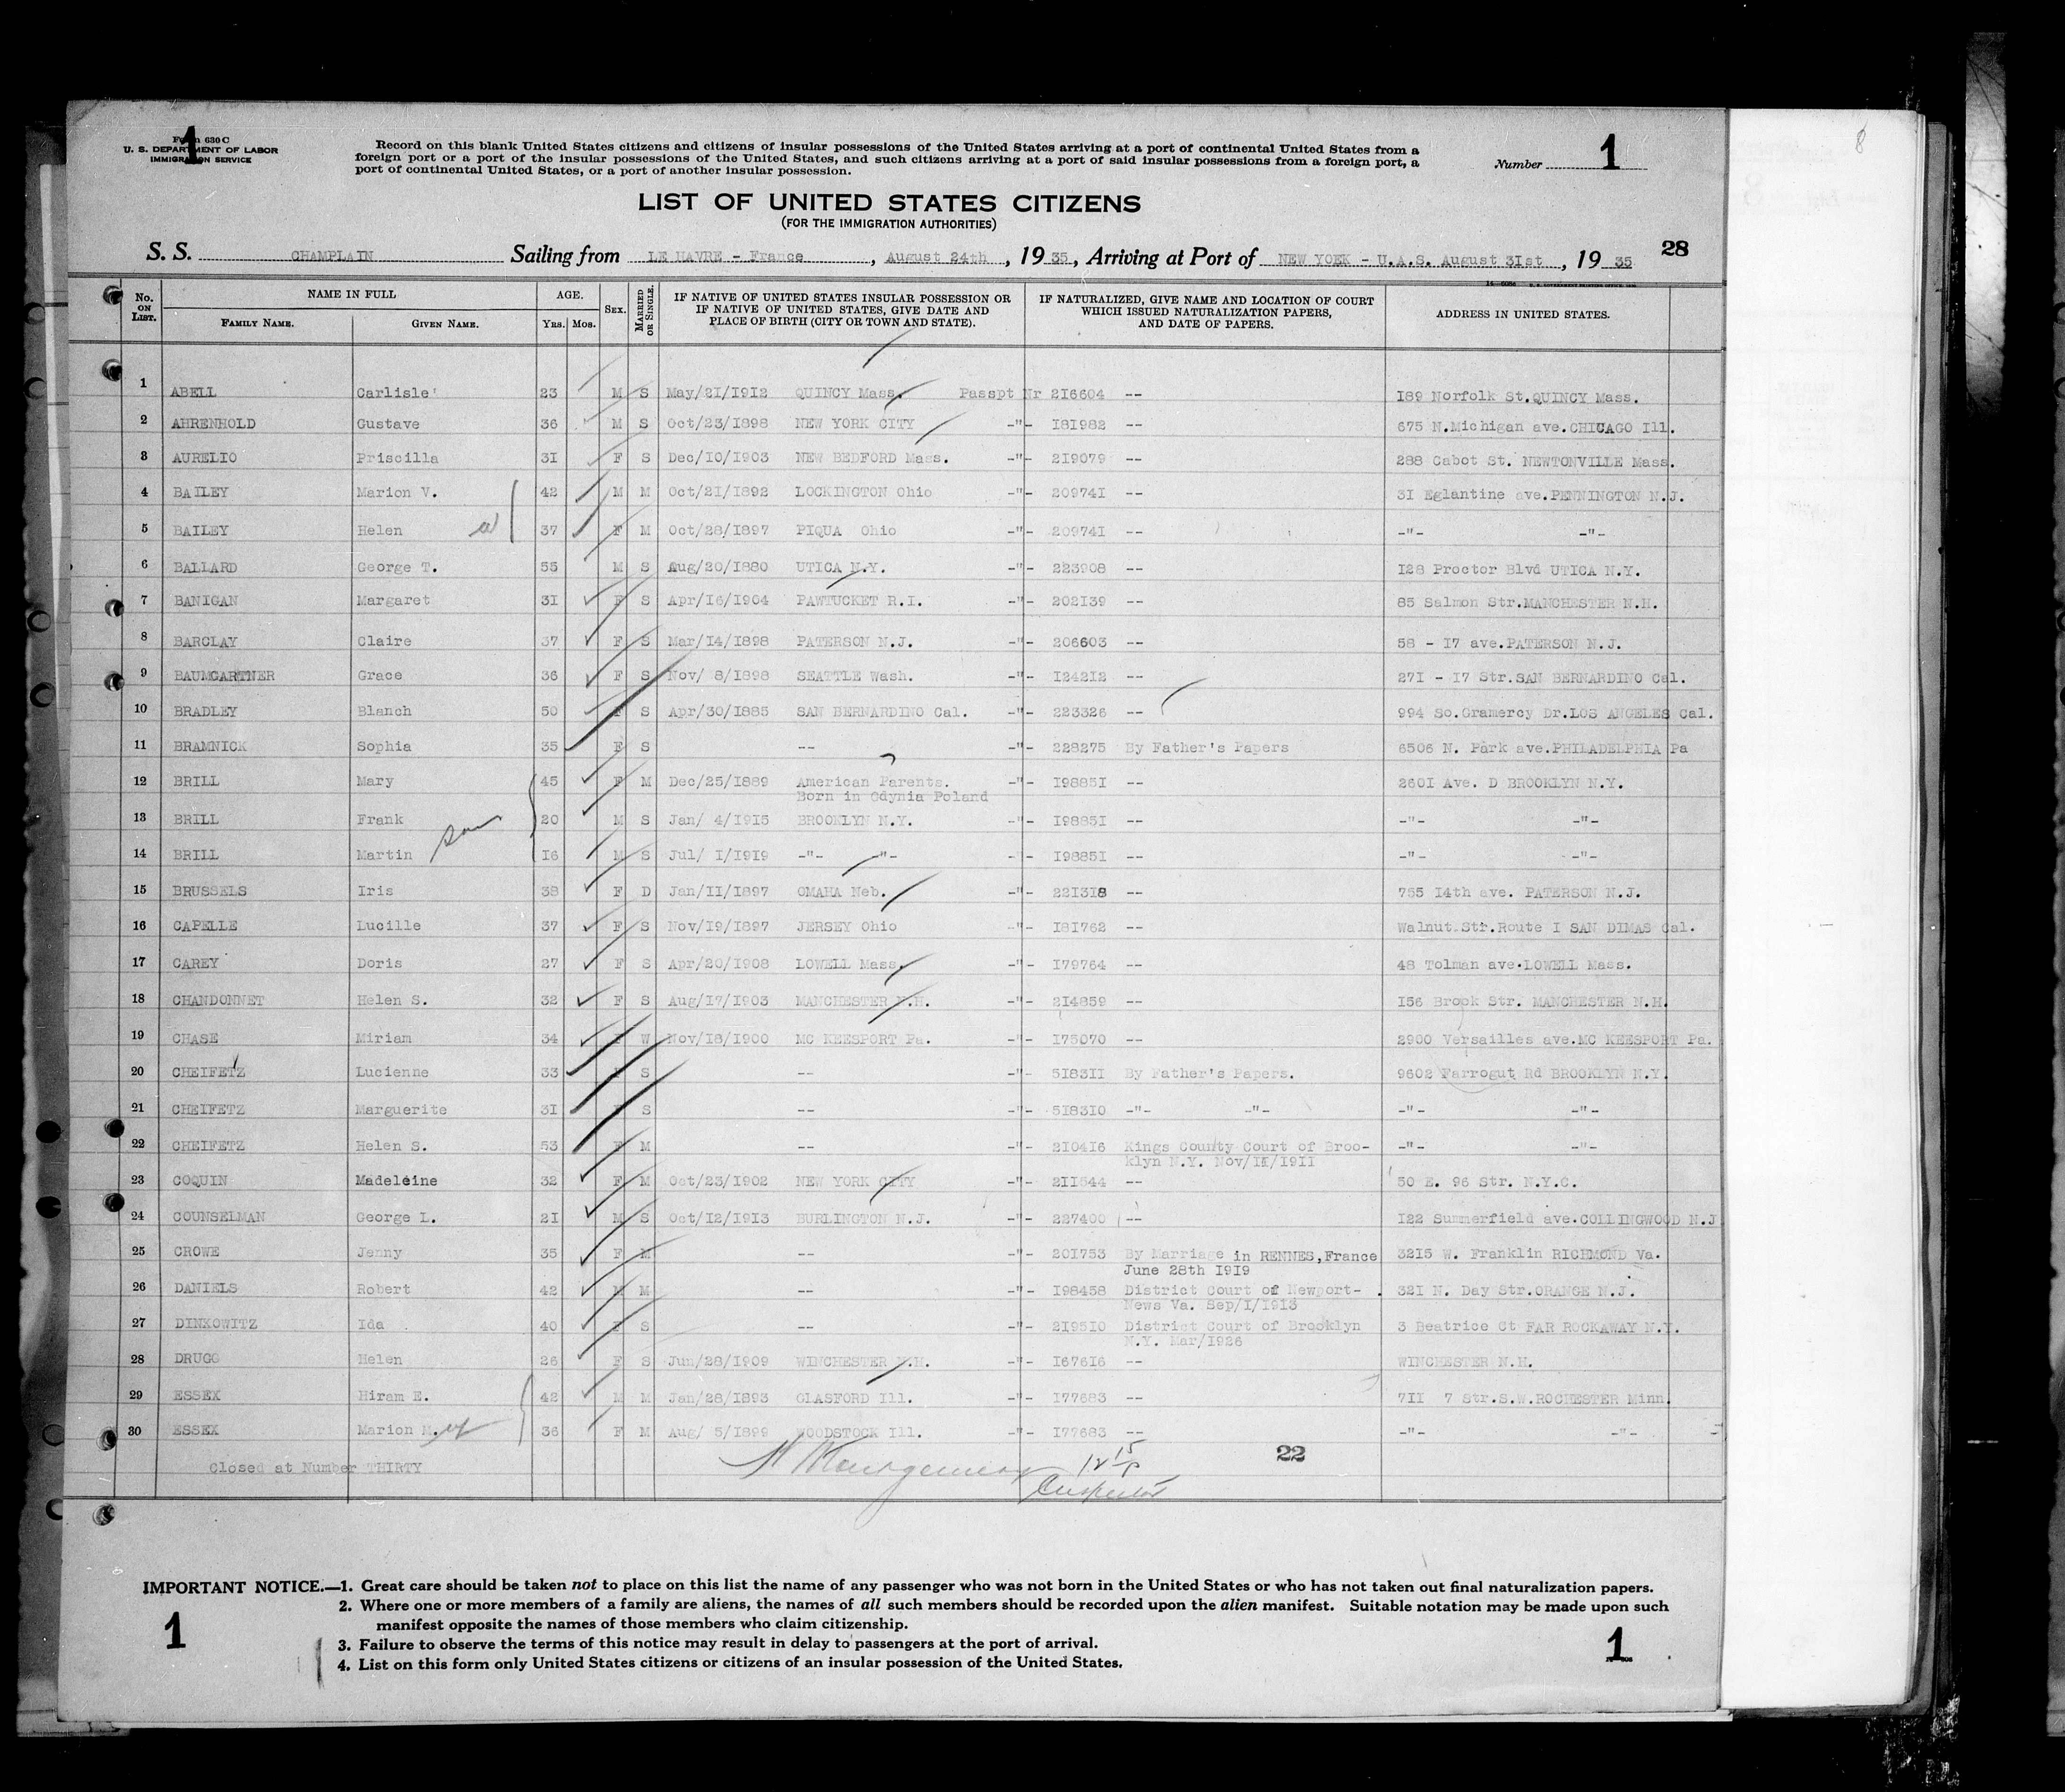 1
Form 630 C
U. S. DEPARTMENT OF LABOR
IMMIGRATION SERVICE
Record on this blank United States citizens and citizens of insular possessions of the United States arriving at a port of continental United States from a
foreign port or a port of the insular possessions of the United States, and such citizens arriving at a port of said insular possessions from a foreign port, a
port of continental United States, or a port of another insular possession.
Number 1
8
LIST OF UNITED STATES CITIZENS
(FOR THE IMMIGRATION AUTHORITIES)
S. S. CHAMPLAIN Sailing from LE HAVRE - France , August 24th , 19 35, Arriving at Port of NEW YORK - U.A.S. August 3Ist , 19 35 28
No. ON LIST. NAME IN FULL FAMILY NAME. GIVEN NAME. AGE. Yrs. Mos. SEX. MARRIED OR SINGLE. IF NATIVE OF UNITED STATES INSULAR POSSESSION OR IF NATIVE OF UNITED STATES, GIVE DATE AND PLACE OF BIRTH (CITY OR TOWN AND STATE). IF NATURALIZED, GIVE NAME AND LOCATION OF COURT WHICH ISSUED NATURALIZATION PAPERS, AND DATE OF PAPERS. ADDRESS IN UNITED STATES.
1 ABELL Carlisle' 23 M S May/2I/I9I2 QUINCY Mass. Passpt Nr 2I6604 -- I89 Norfolk St.QUINCY Mass.
2 AHRENHOLD Gustave 36 M S Oct/23/I898 NEW YORK CITY -"- I8I982 -- 675 N.Michigan ave.CHICAGO Ill.
3 AURELIO Priscilla 3I F S Dec/I0/I903 NEW BEDFORD Mass. -"- 2I9079 -- 288 Cabot St. NEWTONVILLE Mass.
4 BAILEY Marion V. 42 M M Oct/2I/I892 LOCKINGTON Ohio -"- 20974I -- 3I Eglantine ave.PENNINGTON N.J.
5 BAILEY Helen 37 F M Oct/28/I897 PIQUA Ohio -"- 20974I -- -"- -"-
6 BALLARD George T. 55 M S Aug/20/I880 UTICA N.Y. -"- 223908 -- I28 Proctor Blvd UTICA N.Y.
7 BANIGAN Margaret 3I F S Apr/I6/I904 PAWTUCKET R.I. -"- 202I39 -- 85 Salmon Str.MANCHESTER N.H.
8 BARCLAY Claire 37 F S Mar/I4/I898 PATERSON N.J. -"- 206603 -- 58 - I7 ave.PATERSON N.J.
9 BAUMGARTNER Grace 36 F S Nov/ 8/I898 SEATTLE Wash. -"- I242I2 -- 27I - I7 Str.SAN BERNARDINO Cal.
10 BRADLEY Blanch 50 F S Apr/30/I885 SAN BERNARDINO Cal. -"- 223326 -- 994 So.Gramercy Dr.LOS ANGELES Cal.
11 BRAMNICK Sophia 35 F S -- -"- 228275 By Father's Papers 6506 N. Park ave.PHILADELPHIA Pa
12 BRILL Mary 45 F M Dec/25/I889 American Parents. -"- I9885I -- 260I Ave. D BROOKLYN N.Y.
Born in Gdynia Poland
13 BRILL Frank 20 M S Jan/ 4/I9I5 BROOKLYN N.Y. -"- I9885I -- -"- -"-
son
14 BRILL Martin I6 M S Jul/ I/I9I9 -"- -"- I9885I -- -"- -"-
15 BRUSSELS Iris 38 F D Jan/II/I897 OMAHA Neb. -"- 22I3I8 -- 755 I4th ave. PATERSON N.J.
16 CAPELLE Lucille 37 F S Nov/I9/I897 JERSEY Ohio -"- I8I762 -- Walnut.Str.Route I SAN DIMAS Cal.
17 CAREY Doris 27 F S Apr/20/I908 LOWELL Mass. -"- I79764 -- 48 Tolman ave.LOWELL Mass.
18 CHANDONNET Helen S. 32 F S Aug/I7/I903 MANCHESTER N.H. -"- 2I4859 -- I56 Brook Str. MANCHESTER N.H.
19 CHASE Miriam 34 F W Nov/I8/I900 MC KEESPORT Pa. -"- I75070 -- 2900 Versailles ave.MC KEESPORT Pa.
20 CHEIFETZ Lucienne 33 S -- -"- 5I83II By Father's Papers. 9602 Farrogut Rd BROOKLYN N.Y.
21 CHEIFETZ Marguerite 3I S -- -"- 5I83I0 -"- -"- -"- -"-
22 CHEIFETZ Helen S. 53 F M -- -"- 2I04I6 Kings County Court of Broo- -"- -"-
klyn N.Y. Nov/I4/I9II
23 COQUIN Madeleine 32 F M Oct/23/I902 NEW YORK CITY -"- 2II544 -- 50 E. 96 Str. N.Y.C.
24 COUNSELMAN George L. 2I M S Oct/I2/I9I3 BURLINGTON N.J. -"- 227400 -- I22 Summerfield ave.COLLINGWOOD N.J
25 CROWE Jenny 35 F M -- -"- 20I753 By Marriage in RENNES,France 32I5 W. Franklin RICHMOND Va.
June 28th I9I9
26 DANIELS Robert 42 M M -- -"- I98458 District Court of Newport- 32I N. Day Str.ORANGE N.J.
News Va. Sep/I/I9I3
27 DINKOWITZ Ida 40 F S -- -"- 2I95I0 District Court of Brooklyn 3 Beatrice Ct FAR ROCKAWAY N.Y.
N.Y. Mar/I926
28 DRUGG Helen 26 F S Jun/28/I909 WINCHESTER N.H. -"- I676I6 -- WINCHESTER N.H.
29 ESSEX Hiram E. 42 M M Jan/28/I893 GLASFORD Ill. -"- I77683 -- 7II 7 Str.S.W.ROCHESTER Minn.
30 ESSEX Marion M. 36 F M Aug/ 5/I899 WOODSTOCK Ill. -"- I77683 -- -"- -"-
Closed at Number THIRTY
Montgomery
Inspector
22
IMPORTANT NOTICE.—1. Great care should be taken not to place on this list the name of any passenger who was not born in the United States or who has not taken out final naturalization papers.
2. Where one or more members of a family are aliens, the names of all such members should be recorded upon the alien manifest. Suitable notation may be made upon such
manifest opposite the names of those members who claim citizenship.
3. Failure to observe the terms of this notice may result in delay to passengers at the port of arrival.
4. List on this form only United States citizens or citizens of an insular possession of the United States.
1
1